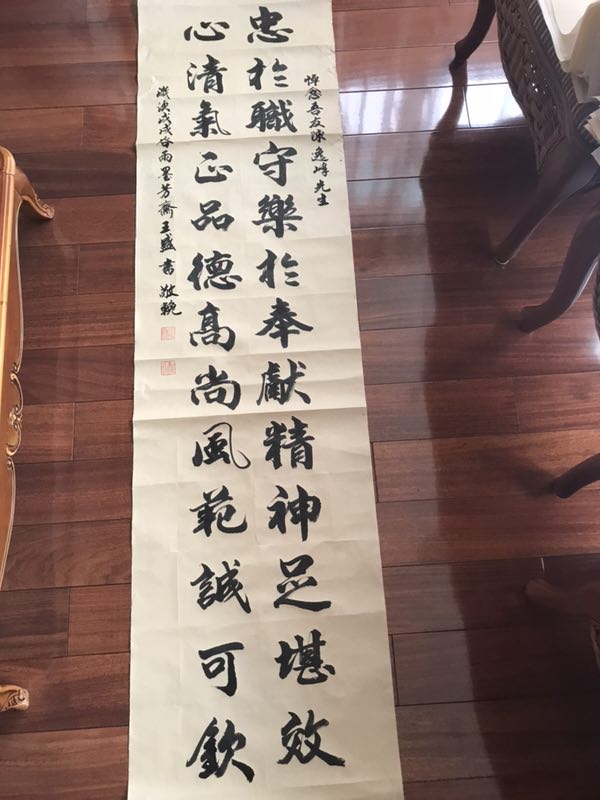 悼念吾友陈逸峰先生
忠於職守樂於奉獻精神足堪效
心清氣正品德高尚風範誠可欽
歲次戊戌谷雨墨芳齋王盛書敬輓